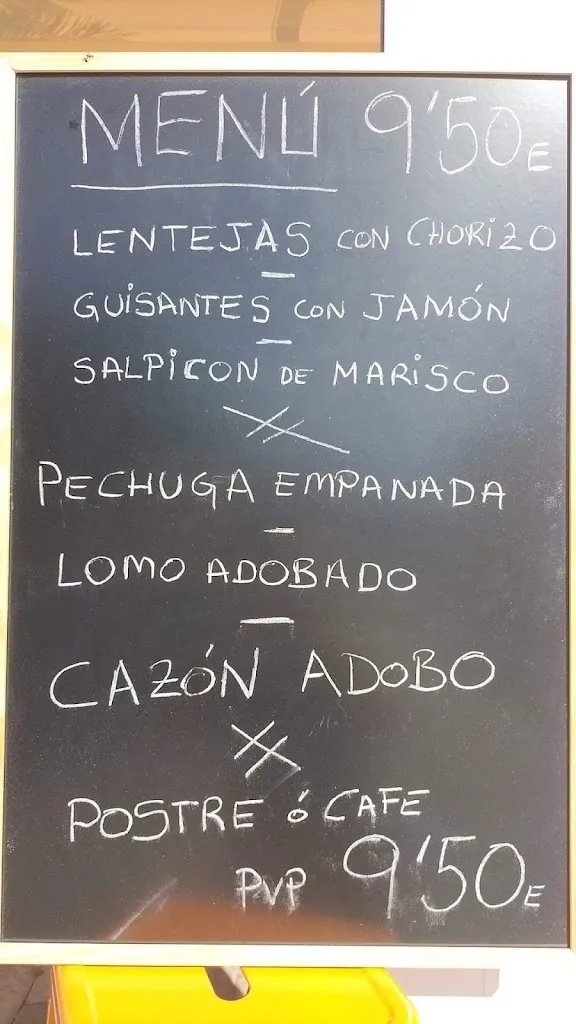 MENÚ 9'50E
LENTEJAS CON CHORIZO
GUISANTES CON JAMÓN
SALPICON DE MARISCO
PECHUGA EMPANADA
LOMO ADOBADO
CAZÓN ADOBO
POSTRE ó CAFE
PVP 9'50E